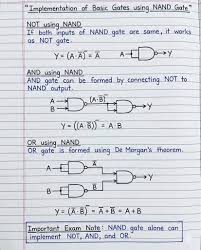 "Implementation of Basic Gates using NAND Gate"
NOT using NAND
If both inputs of NAND gate are same, it works
as NOT gate.
Y = (A·A)̅ = A̅
A
Y
AND using NAND
AND gate can be formed by connecting NOT to
NAND output.
A
B
(A·B)̅
Y
Y = ((A·B)̅)̅ = A·B
OR using NAND
OR gate is formed using De Morgan's theorem.
A
A̅
B
B̅
Y
Important Exam Note: NAND gate alone can
implement NOT, AND, and OR.